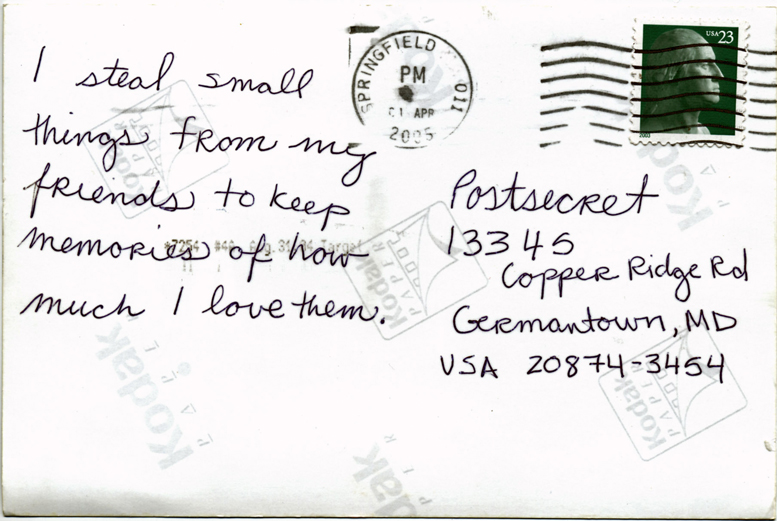 I steal small
things from my
friends to keep
memories of how
much I love them.
SPRINGFIELD 011
PM
01 APR
2005
USA 23
2003
Postsecret
13345
Copper Ridge Rd
Germantown, MD
USA 20874-3454
Kodak
Kodak
Kodak
Kodak
Kodak
Kodak
Kodak